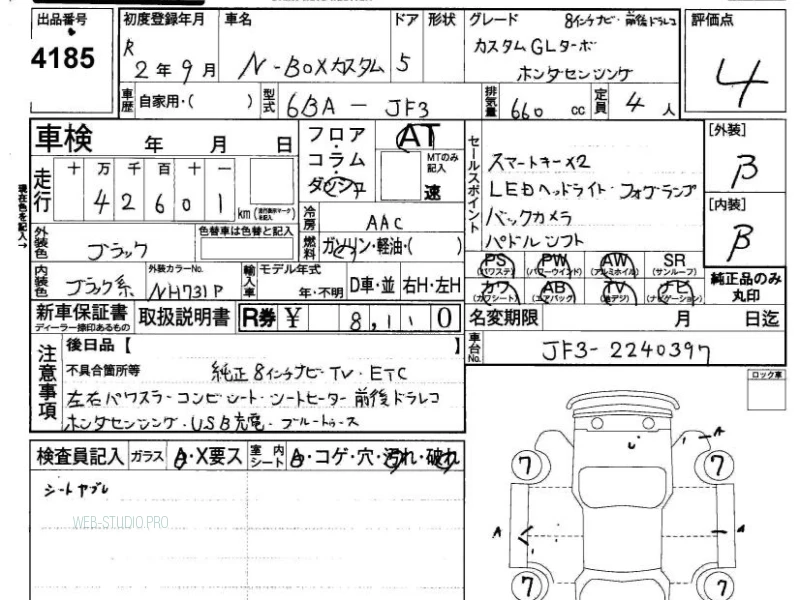 出品番号
4185
初度登録年月 車名 ドア 形状 グレード 8インチナビ・前後ドラレコ 評価点
R 2年9月 N-BOXカスタム 5 カスタムGLターボ 4
ホンダセンシング
車歴 自家用・( ) 型式 6BA-JF3 排気量 660 cc 定員 4人
車検 年 月 日
フロア コラム ダッシュ
AT
MTのみ記入
速
セールスポイント
スマートキー×2
LEDヘッドライト・フォグランプ
バックカメラ
パドルシフト
[外装]
B
[内装]
B
現在色を記入→
走行 十 万 千 百 十 一
42601 km
(走行表示マークを記入)
冷房 AAC
外装色 ブラック 色替車は色替と記入
燃料 ガソリン・軽油・( )
PS (パワステ) PW (パワーウインド) AW (アルミホイル) SR (サンルーフ)
カワ (カワシート) AB (エアバック) TV (地デジ) ナビ (ナビゲーション)
純正品のみ丸印
内装色 ブラック系 外装カラーNo. NH731P 輸入車 モデル年式 年・不明 D車・並 右H・左H
新車保証書 ディーラー捺印あるもの 取扱説明書 R券 ¥ 8,110
名変期限 月 日迄
車台No. JF3-2240397
注意事項
後日品【 】
不具合箇所等 純正8インチナビ・TV・ETC
左右パワスラ・コンビシート・シートヒーター 前後ドラレコ
ホンダセンシング・USB充電・ブルートゥース
ロック車
検査員記入 ガラス A・X要ス 室内シート A・コゲ・穴・汚れ・破れ
シートヤブレ
WEB-STUDIO.PRO
A
7 7
A A
7 7